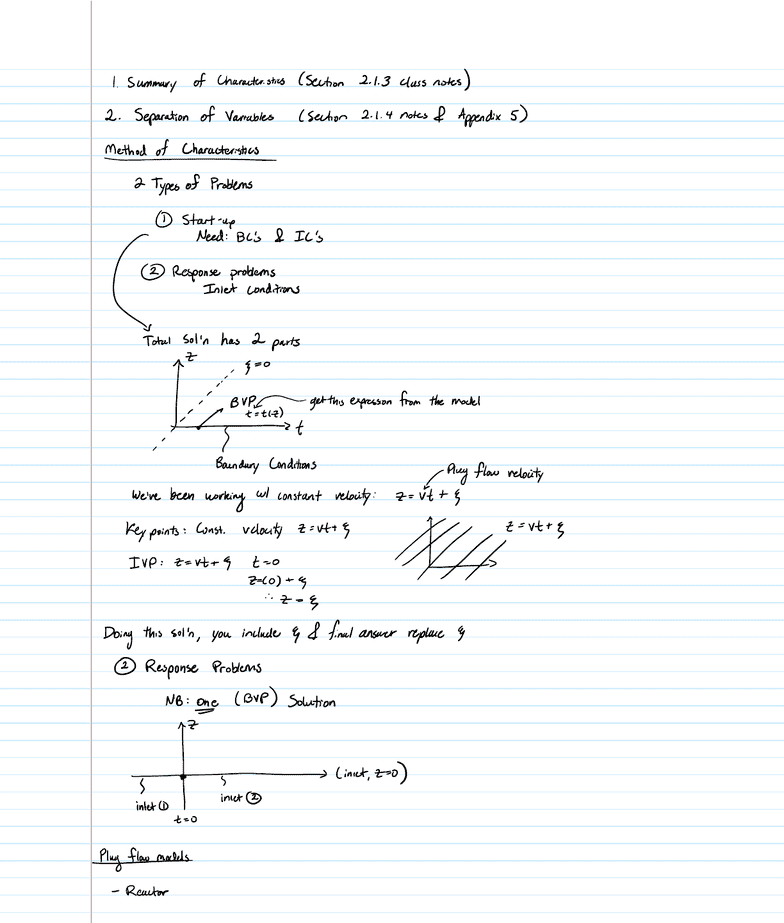 1. Summary of Characteristics (Section 2.1.3 class notes)
2. Separation of Variables (Section 2.1.4 notes & Appendix 5)
Method of Characteristics
2 Types of Problems
① Start-up
Need: BC's & IC's
② Response problems
Inlet Conditions
Total sol'n has 2 parts
z
ξ=0
BVP
t=t(z)
get this expression from the model
t
Boundary Conditions
Plug flow velocity
We've been working w/ constant velocity: z=vt+ξ
Key points: Const. velocity z=vt+ξ
z=vt+ξ
IVP: z=vt+ξ t=0
z=(0)+ξ
∴ z=ξ
Doing this sol'n, you include ξ & final answer replace ξ
② Response Problems
NB: one (BVP) Solution
z
(inlet, z=0)
inlet ①
inlet ②
t=0
Plug flow models
- Reactor